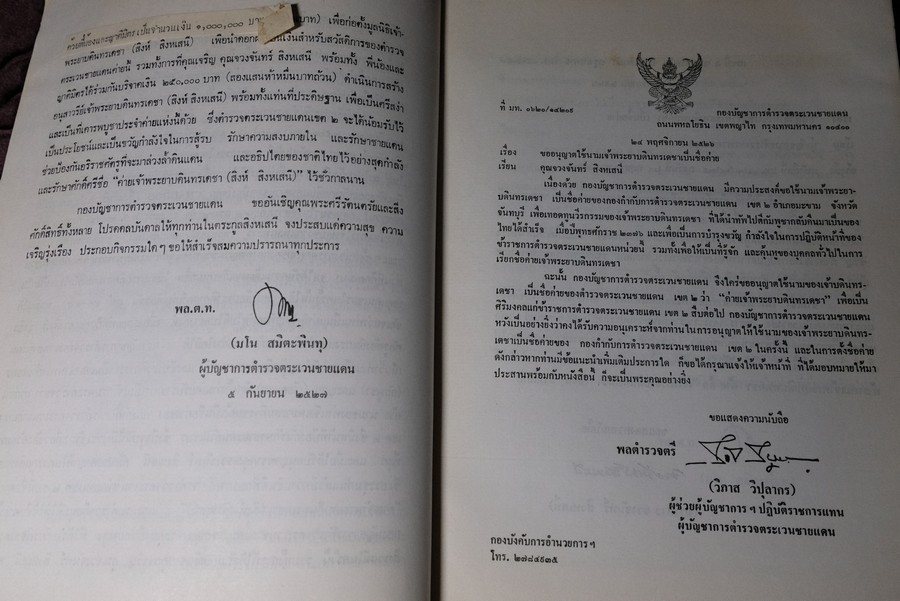 ด้วยพี่น้องและญาติมิตร เป็นจำนวนเงิน ๑,๐๐๐,๐๐๐ บาท บาท) เพื่อก่อตั้งมูลนิธิเจ้า-
พระยาบดินทรเดชา (สิงห์ สิงหเสนี) เพื่อนำดอกผล เงินสำหรับสวัสดิการของตำรวจ
ตระเวนชายแดนค่ายนี้ รวมทั้งการที่คุณเจริญ คุณจวงจันทร์ สิงหเสนี พร้อมทั้ง พี่น้องและ
ญาติมิตรได้ร่วมกันบริจาคเงิน ๒๕๐,๐๐๐ บาท (สองแสนห้าหมื่นบาทถ้วน) ดำเนินการสร้าง
อนุสาวรีย์เจ้าพระยาบดินทรเดชา (สิงห์ สิงหเสนี) พร้อมทั้งแท่นที่ประดิษฐาน เพื่อเป็นศรีสง่า
และเป็นที่เคารพบูชาประจำค่ายแห่งนี้ด้วย ซึ่งตำรวจตระเวนชายแดนเขต ๒ จะได้น้อมรับไว้
เป็นประโยชน์และเป็นขวัญกำลังใจในการสู้รบ รักษาความสงบภายใน และรักษาชายแดน
ช่วยป้องกันอริราชศัตรูที่จะมาล่วงล้ำดินแดน และอธิปไตยของชาติไทยไว้อย่างสุดกำลัง
และรักษาศักดิ์ศรีชื่อ “ค่ายเจ้าพระยาบดินทรเดชา (สิงห์ สิงหเสนี)” ไว้ชั่วกาลนาน
กองบัญชาการตำรวจตระเวนชายแดน ขออันเชิญคุณพระศรีรัตนตรัยและสิ่ง
ศักดิ์สิทธิ์ทั้งหลาย โปรดดลบันดาลให้ทุกท่านในตระกูลสิงหเสนี จงประสบแต่ความสุข ความ
เจริญรุ่งเรือง ประกอบกิจกรรมใด ๆ ขอให้สำเร็จสมความปรารถนาทุกประการ
พล.ต.ท.
(มโน สมิตะพินทุ)
ผู้บัญชาการตำรวจตระเวนชายแดน
๕ กันยายน ๒๕๒๗
ที่ มท. ๐๖๒๐/๑๔๒๐๙ กองบัญชาการตำรวจตระเวนชายแดน
ถนนพหลโยธิน เขตพญาไท กรุงเทพมหานคร ๑๐๔๐๐
๒๔ พฤศจิกายน ๒๕๒๖
เรื่อง ขออนุญาตใช้นามเจ้าพระยาบดินทรเดชาเป็นชื่อค่าย
เรียน คุณจวงจันทร์ สิงหเสนี
เนื่องด้วย กองบัญชาการตำรวจตระเวนชายแดน มีความประสงค์ขอใช้นามเจ้าพระยา-
บดินทรเดชา เป็นชื่อค่ายของกองกำกับการตำรวจตระเวนชายแดน เขต ๒ อำเภอมะขาม จังหวัด
จันทบุรี เพื่อเทอดทูนวีรกรรมของเจ้าพระยาบดินทรเดชา ที่ได้นำทัพไปตีกัมพูชากลับคืนมาเป็นของ
ไทยได้สำเร็จ เมื่อปีพุทธศักราช ๒๓๗๖ และเพื่อเป็นการบำรุงขวัญ กำลังใจในการปฏิบัติหน้าที่ของ
ข้าราชการตำรวจตระเวนชายแดนหน่วยนี้ รวมทั้งเพื่อให้เป็นที่รู้จัก และคุ้นหูของบุคคลทั่วไปในการ
เรียกชื่อค่ายเจ้าพระยาบดินทรเดชา
ฉะนั้น กองบัญชาการตำรวจตระเวนชายแดน จึงใคร่ขออนุญาตใช้นามของเจ้าบดินทร-
เดชา เป็นชื่อค่ายของตำรวจตระเวนชายแดน เขต ๒ ว่า “ค่ายเจ้าพระยาบดินทรเดชา” เพื่อเป็น
ศิริมงคลแก่ข้าราชการตำรวจตระเวนชายแดน เขต ๒ สืบต่อไป กองบัญชาการตำรวจตระเวนชายแดน
หวังเป็นอย่างยิ่งว่าคงได้รับความอนุเคราะห์จากท่านในการอนุญาตให้ใช้นามของเจ้าพระยาบดินทร-
เดชาเป็นชื่อค่ายของ กองกำกับการตำรวจตระเวนชายแดน เขต ๒ ในครั้งนี้ และในการตั้งชื่อค่าย
ดังกล่าวหากท่านมีข้อแนะนำเพิ่มเติมประการใด ก็ขอได้กรุณาแจ้งให้เจ้าหน้าที่ ที่ได้มอบหมายให้มา
ประสานพร้อมกับหนังสือนี้ ก็จะเป็นพระคุณอย่างยิ่ง
ขอแสดงความนับถือ
พลตำรวจตรี
(วิภาส วิปุลากร)
ผู้ช่วยผู้บัญชาการ ฯ ปฏิบัติราชการแทน
ผู้บัญชาการตำรวจตระเวนชายแดน
กองบังคับการอำนวยการ ฯ
โทร. ๒๗๘๔๙๓๕